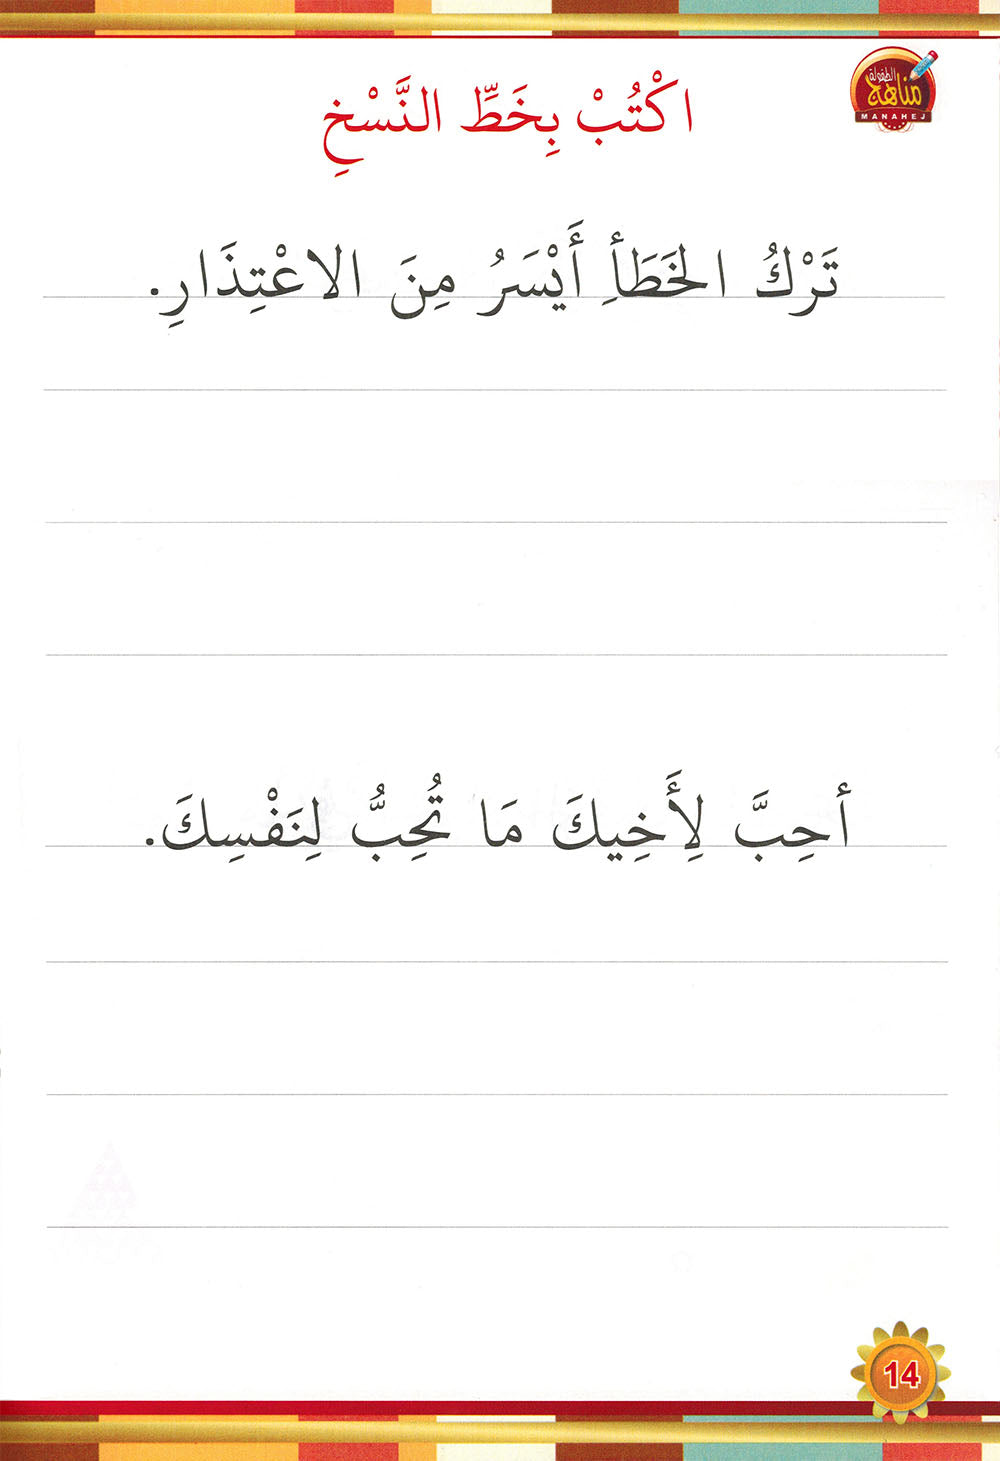 مناهج الطفولة
MANAHEJ
اكْتُبْ بِخَطِّ النَّسْخِ
تَرْكُ الخَطَأِ أَيْسَرُ مِنَ الاعْتِذَارِ.
أحِبَّ لِأَخِيكَ مَا تُحِبُّ لِنَفْسِكَ.
14